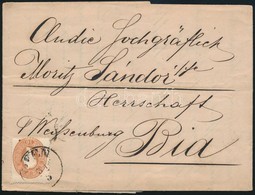 An die Hochgräflich
Moritz Sándor'sche
Herrschaft
p Weissenburg Bia